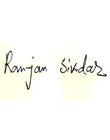 Ranjan Sikdar